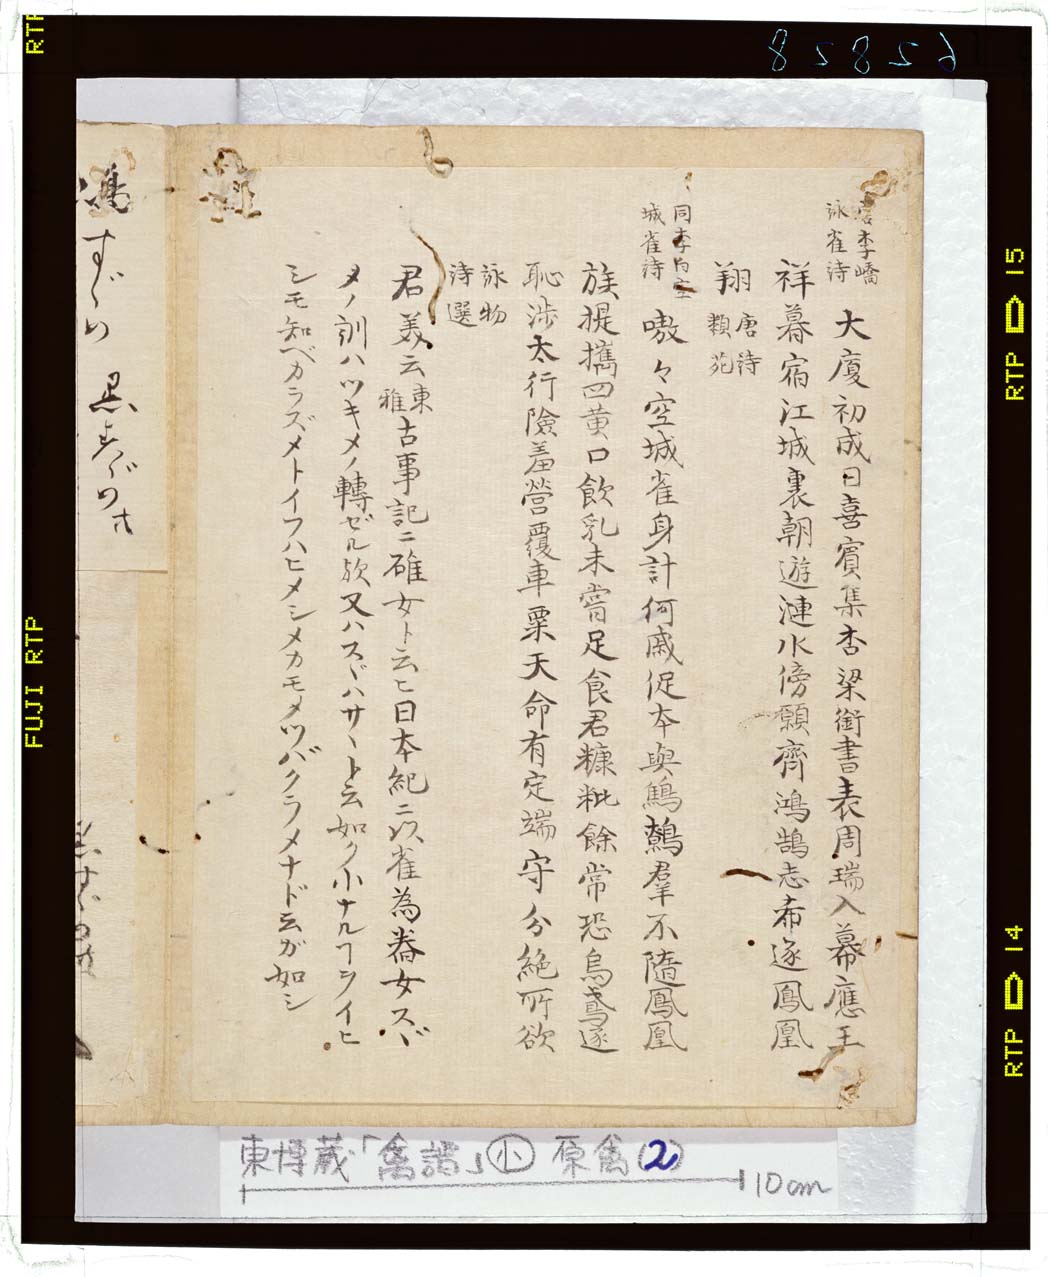 62828
唐李嶠
詠雀詩
大廈初成日喜賓集杏梁銜書表周瑞入幕應王
祥暮宿江城裏朝遊漣水傍願齊鴻鵠志希逐鳳凰
翔
唐詩
類苑
同李白空
城雀詩
嗷々空城雀身計何戚促本與鷦鷯羣不隨鳳凰
族提攜四黄口飲乳未嘗足食君糠粃餘常恐烏鳶逐
恥渉太行險羞營覆車粟天命有定端守分絶所欲
詠物
詩選
君美云
東
雅
古事記ニ碓女ト云ヒ日本紀ニ以雀為舂女スヾ
メノ訓ハツキメノ轉ゼル歟又ハスヾハサヽト云如ク小ナルヿヲイヒ
シモ知ベカラズメトイフハヒメシメカモメツバクラメナド云ガ如シ
すゞめ
東博蔵「禽譜」小 原禽(2)
10cm
RTP
FUJI RTP
RTP 15
RTP 14